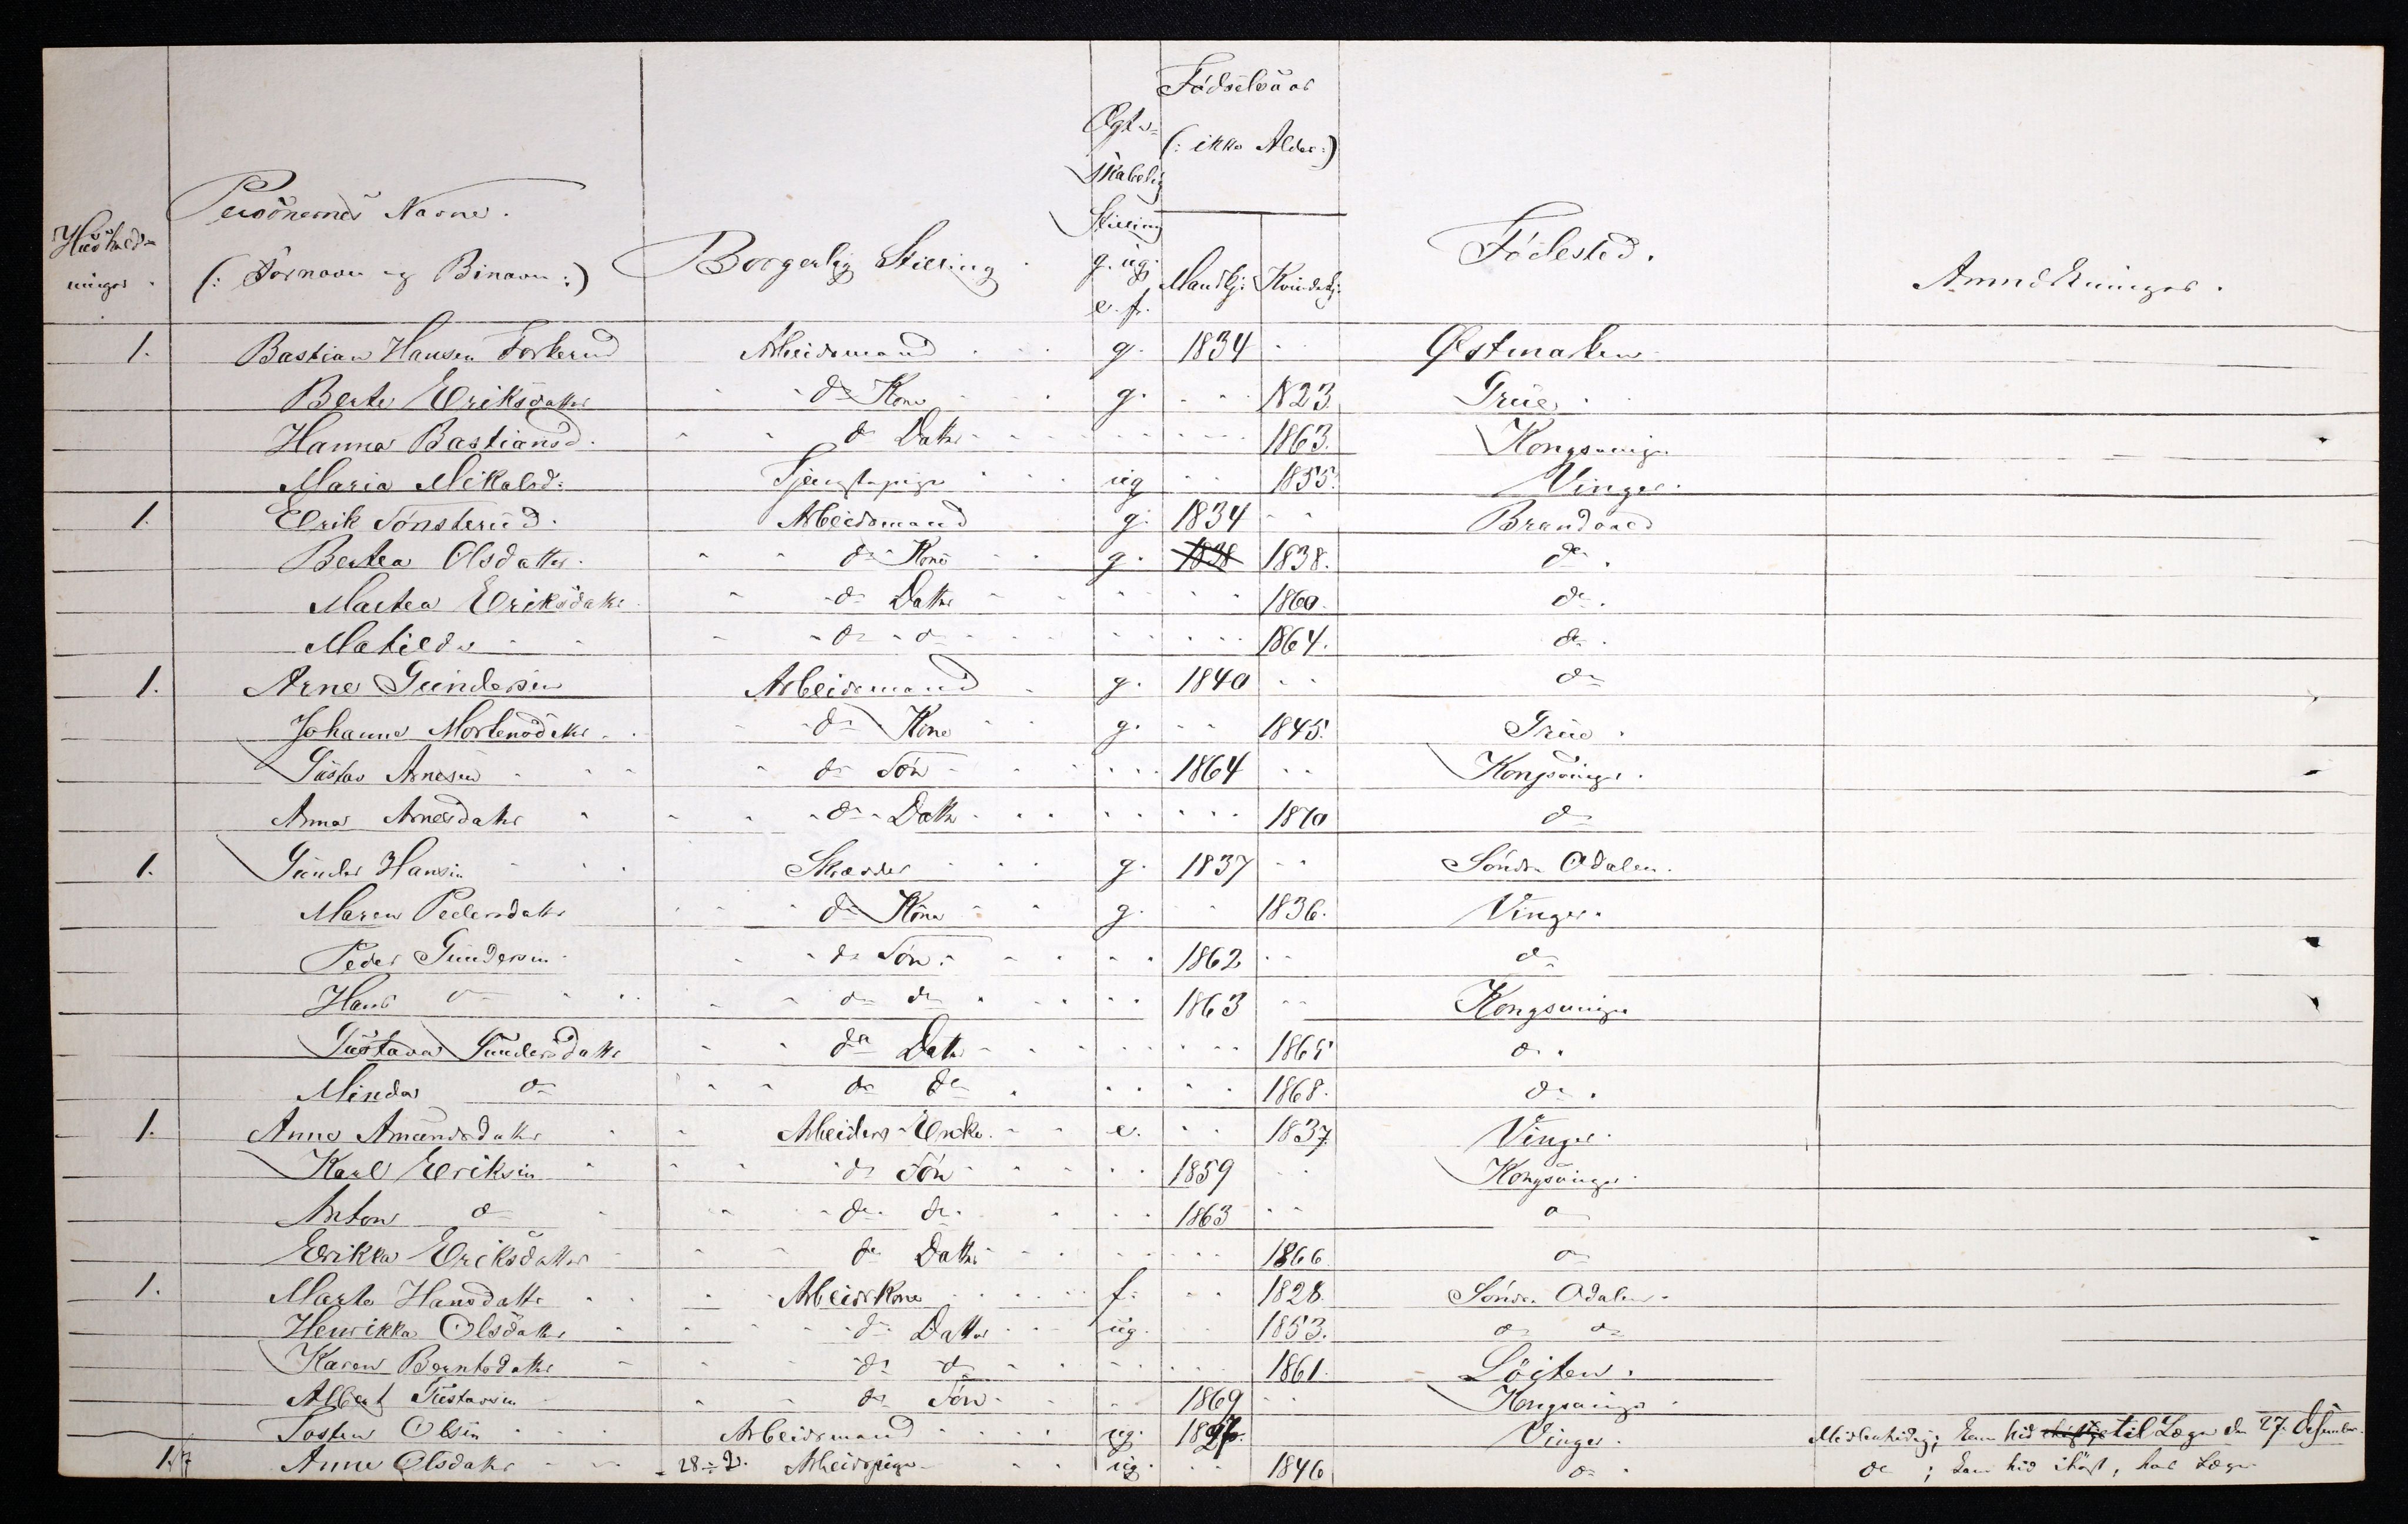 Husholdninger.
Personernes Navne.
(: Fornavn og Binavn :)
Borgerlig Stilling.
Ægteskabelig Stilling
g. ug. e. f.
Fødselsaar
(: ikke Alder :)
Mandkj. Kvindekj.
Fødested.
Anmærkninger.
1. Bastian Hansen Arbeidsmand g. 1834 Østmarken
Berte Eriksdatter do Kone g. 1823. Grue
Hanna Bastiansd. do Datter 1863. Kongsvinger
Maria Mikalsd: Tjenestepige ug 1855. Vinger.
1. Erik Sønsterud. Arbeidsmand g. 1834 Brandvold
Bertea Olsdatter. do Kone g. 1838 1838. do.
Martea Eriksdatter do Datter 1860. do.
Matilde do do 1864. do.
1. Arne Gundersen Arbeidsmand g. 1840 do
Johanne Mortensdatter do Kone g. 1845. Grue.
Gustav Arnesen do Søn 1864 Kongsvinger.
Anna Arnesdatter do Datter 1870 do
1. Gunder Hansen Skræder g. 1837 Søndre Odalen.
Maren Pedersdatter do Kone g. 1836. Vinger.
Peder Gundersen do Søn. 1862 do
Hans do do do 1863 Kongsvinger
Gustava Gundersdatter do Datter 1865 do.
Minda do do do 1868. do.
1. Anne Amundsdatter Arbeiders Enke. e. 1837. Vinger.
Karl Eriksen do Søn 1859 Kongsvinger.
Anton do do do. 1863 do
Erikka Eriksdatter do Datter 1866 do
1. Marte Hansdatter Arbeidskone f. 1828. Søndre Odalen.
Henrikka Olsdatter do Datter ug. 1853. do do
Karen Berntsdatter do do 1861. Løiten.
Albert Gustavsen do Søn 1869 Kongsvinger.
Tosten Olsen Arbeidsmand ug. Vinger. Midlertidig; kom hid til Læge den 27. Desember.
1. Anne Olsdatter 28÷2. Arbeidspige ug. 1846 do. do ; kom hid ihøst, har Læge